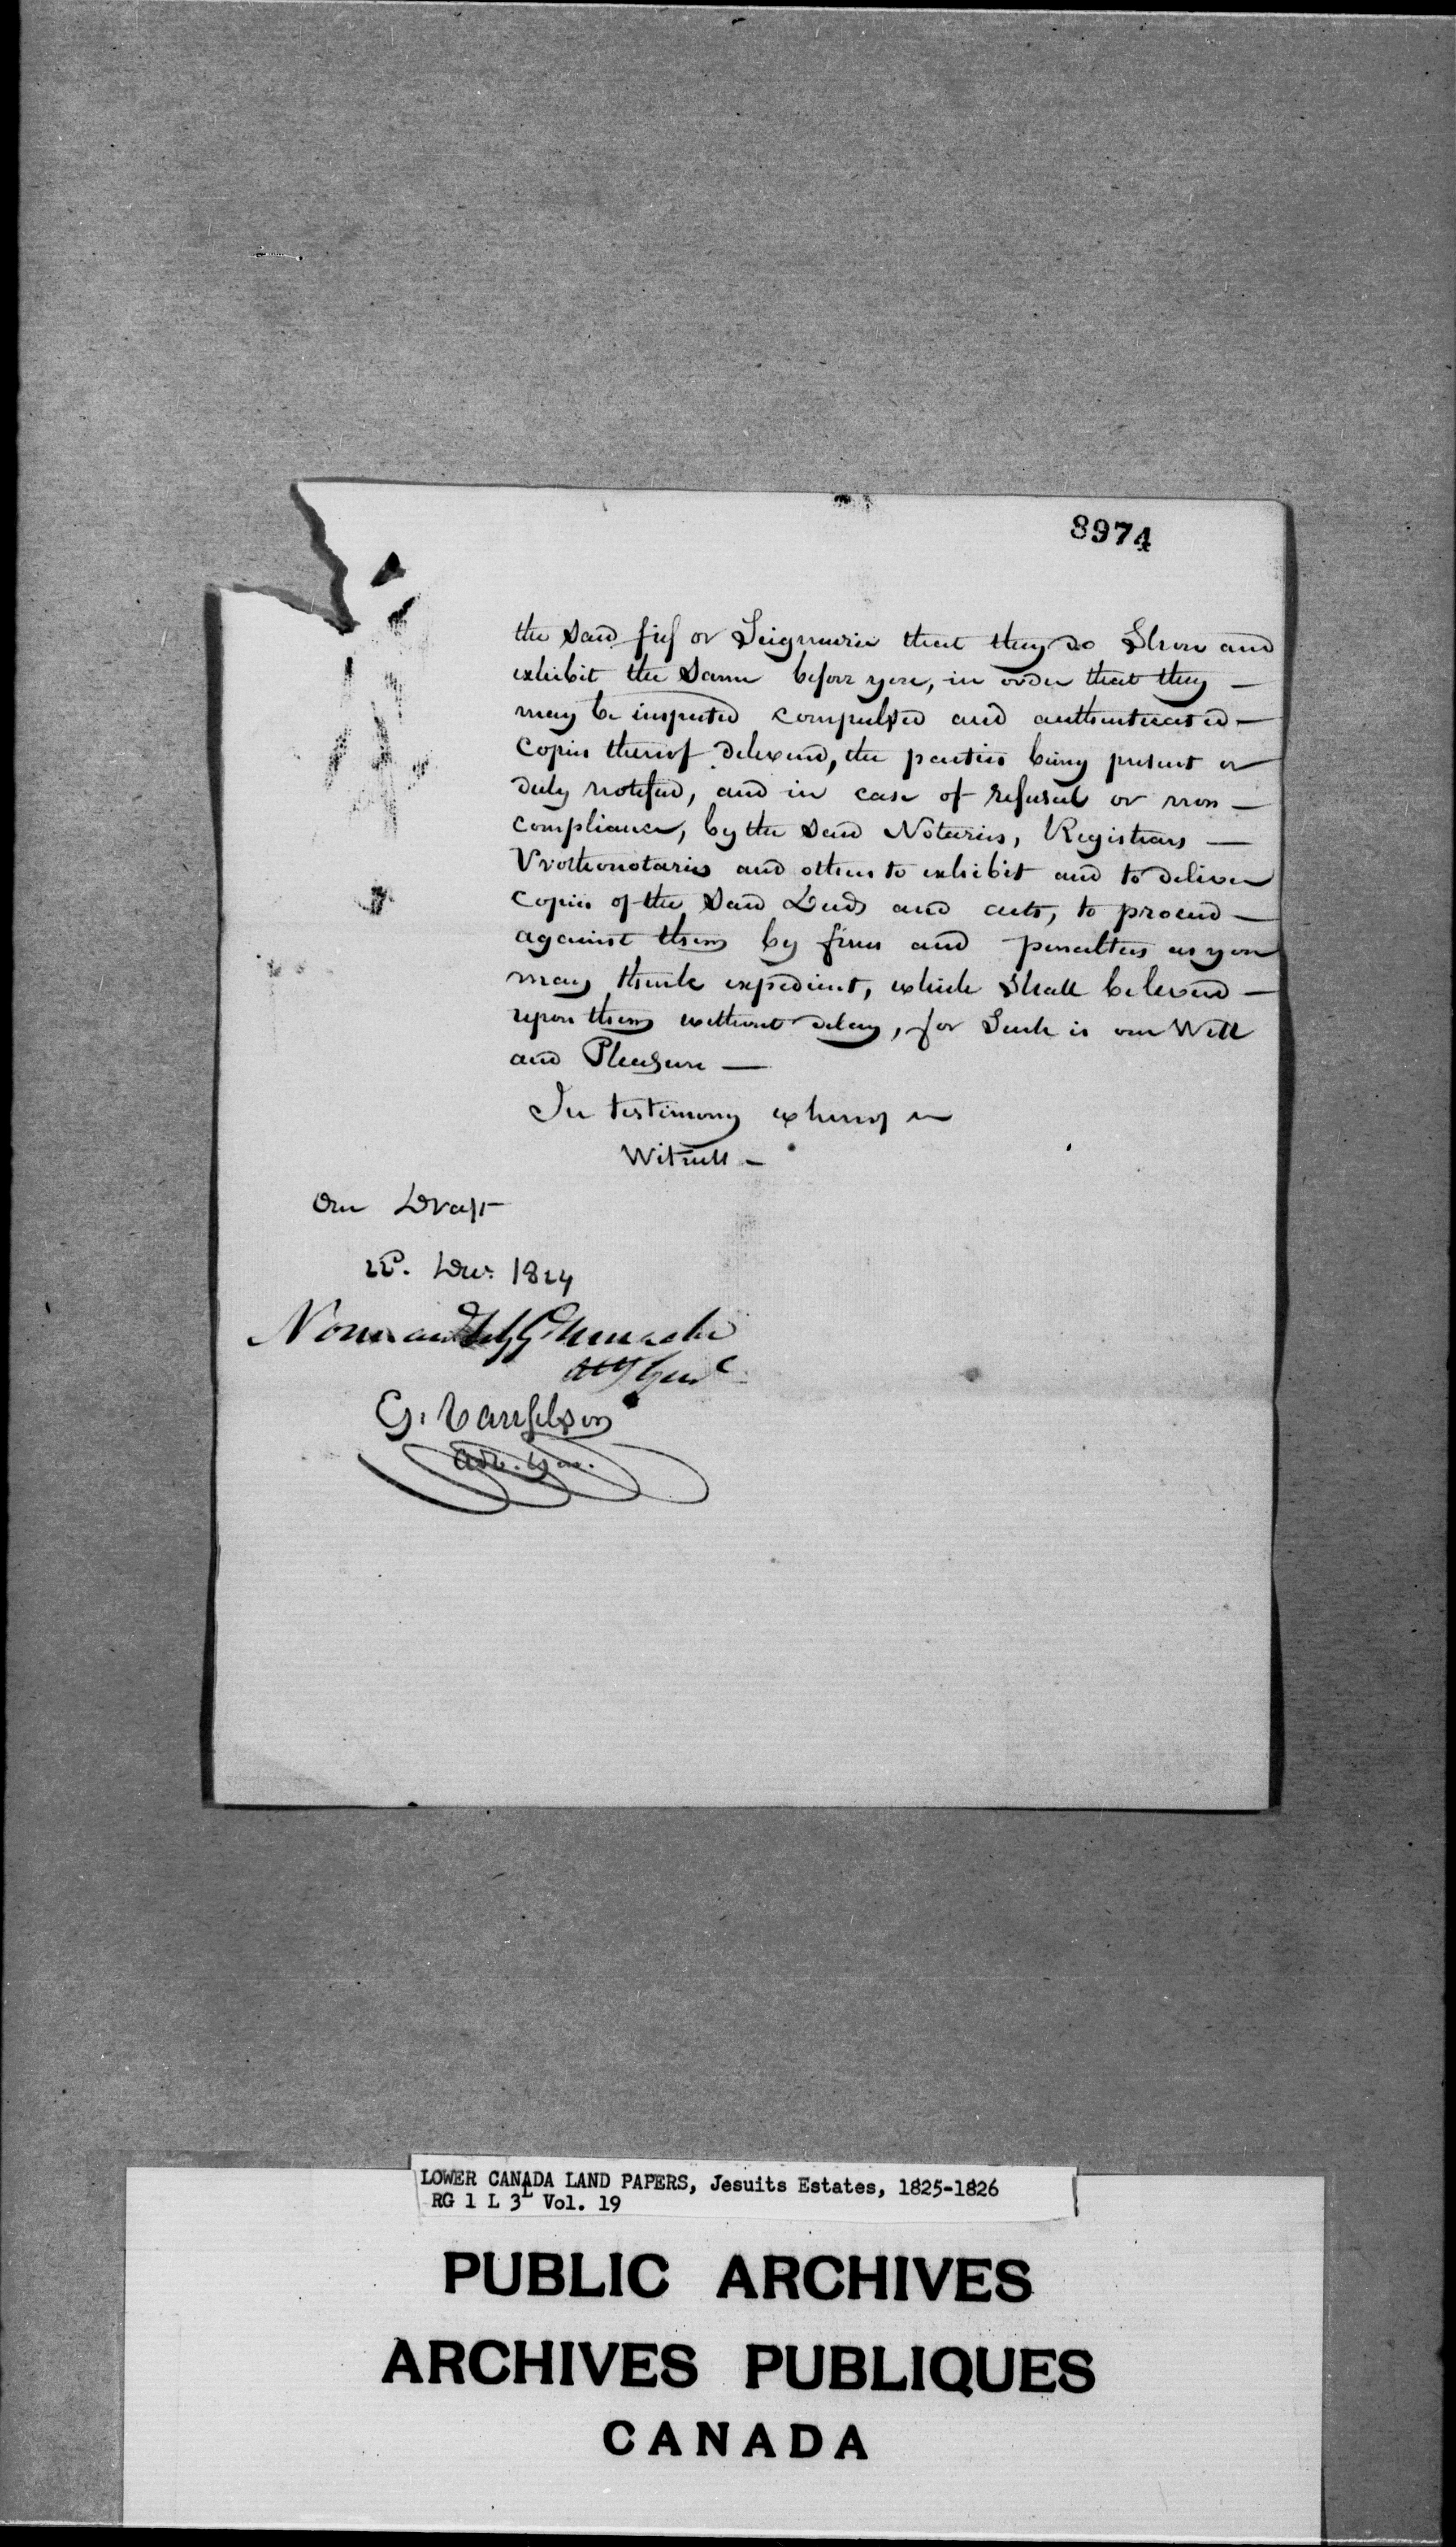 8974
the said fief or Seigneurie that they do Shew and
exhibit the Same before you, in order that they —
may be inspected compulsed and authenticated —
Copies thereof delivered, the parties being present or
duly notified, and in case of refusal or non —
compliance, by the said Notaries, Registrars —
Prothonotaries and others to exhibit and to deliver
Copies of the said Deeds and acts, to proceed —
against them by fines and penalties as you
may think expedient, which Shall be levied —
upon them without delay, for Such is our Will
and Pleasure —
In testimony whereof
Witness —
Our Draft
22d. Decr. 1824
Atty Genl
G. Vanfelson
Adv. Gen.
LOWER CANADA LAND PAPERS, Jesuits Estates, 1825-1826
RG 1 L 3L Vol. 19
PUBLIC ARCHIVES
ARCHIVES PUBLIQUES
CANADA